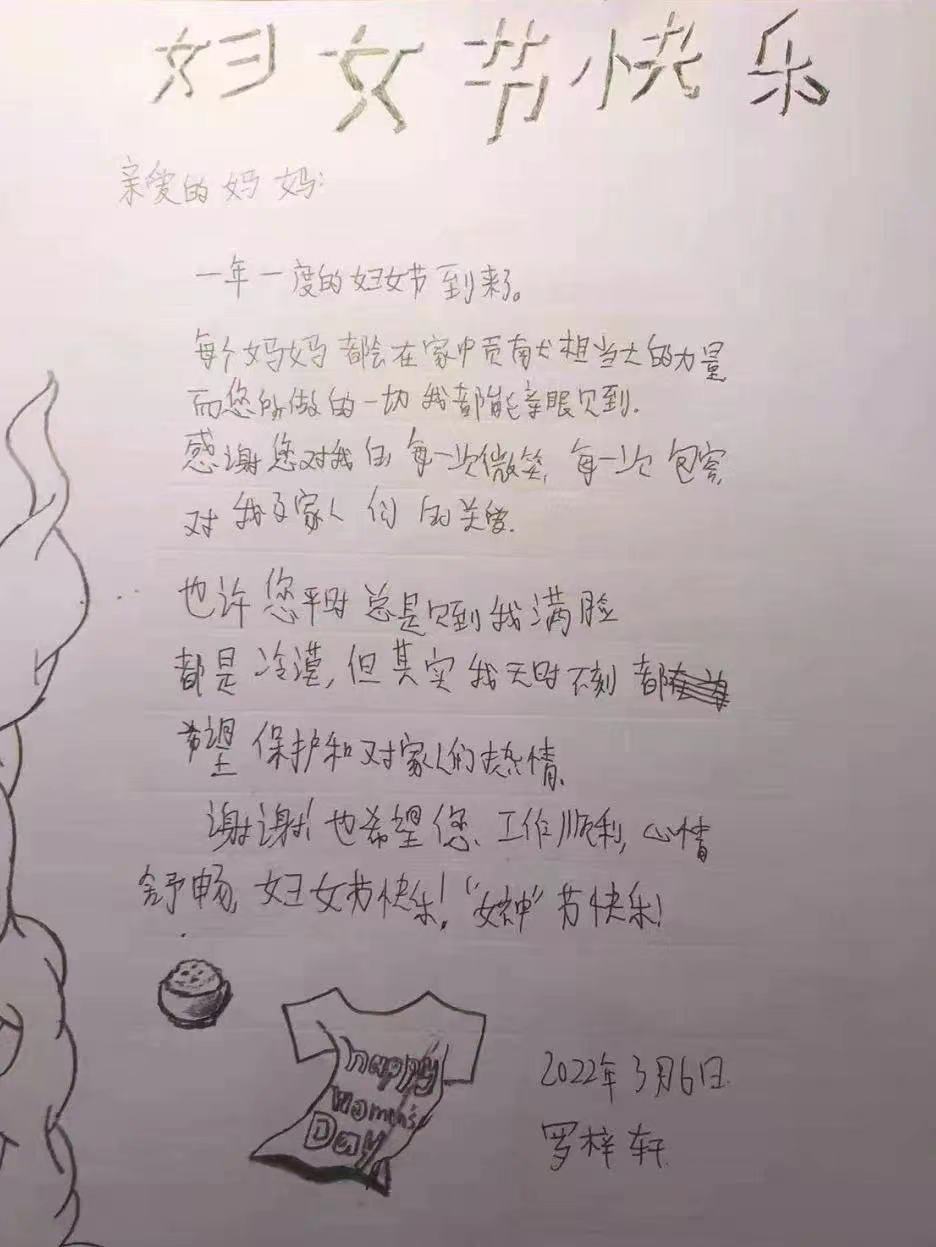 妇女节快乐
亲爱的妈妈:
一年一度的妇女节到来了。
每个妈妈都会在家中贡献相当大的力量
而您所做的一切我都能亲眼见到.
感谢您对我的每一次微笑,每一次包容,
对我及家人们的关爱.
也许您平时总是见到我满脸
都是冷漠,但其实我无时不刻都
希望保护和对家人们热情.
谢谢!也希望您、工作顺利,心情
舒畅,妇女节快乐!“女神”节快乐!
happy
Women's
Day
2022年3月6日.
罗梓轩